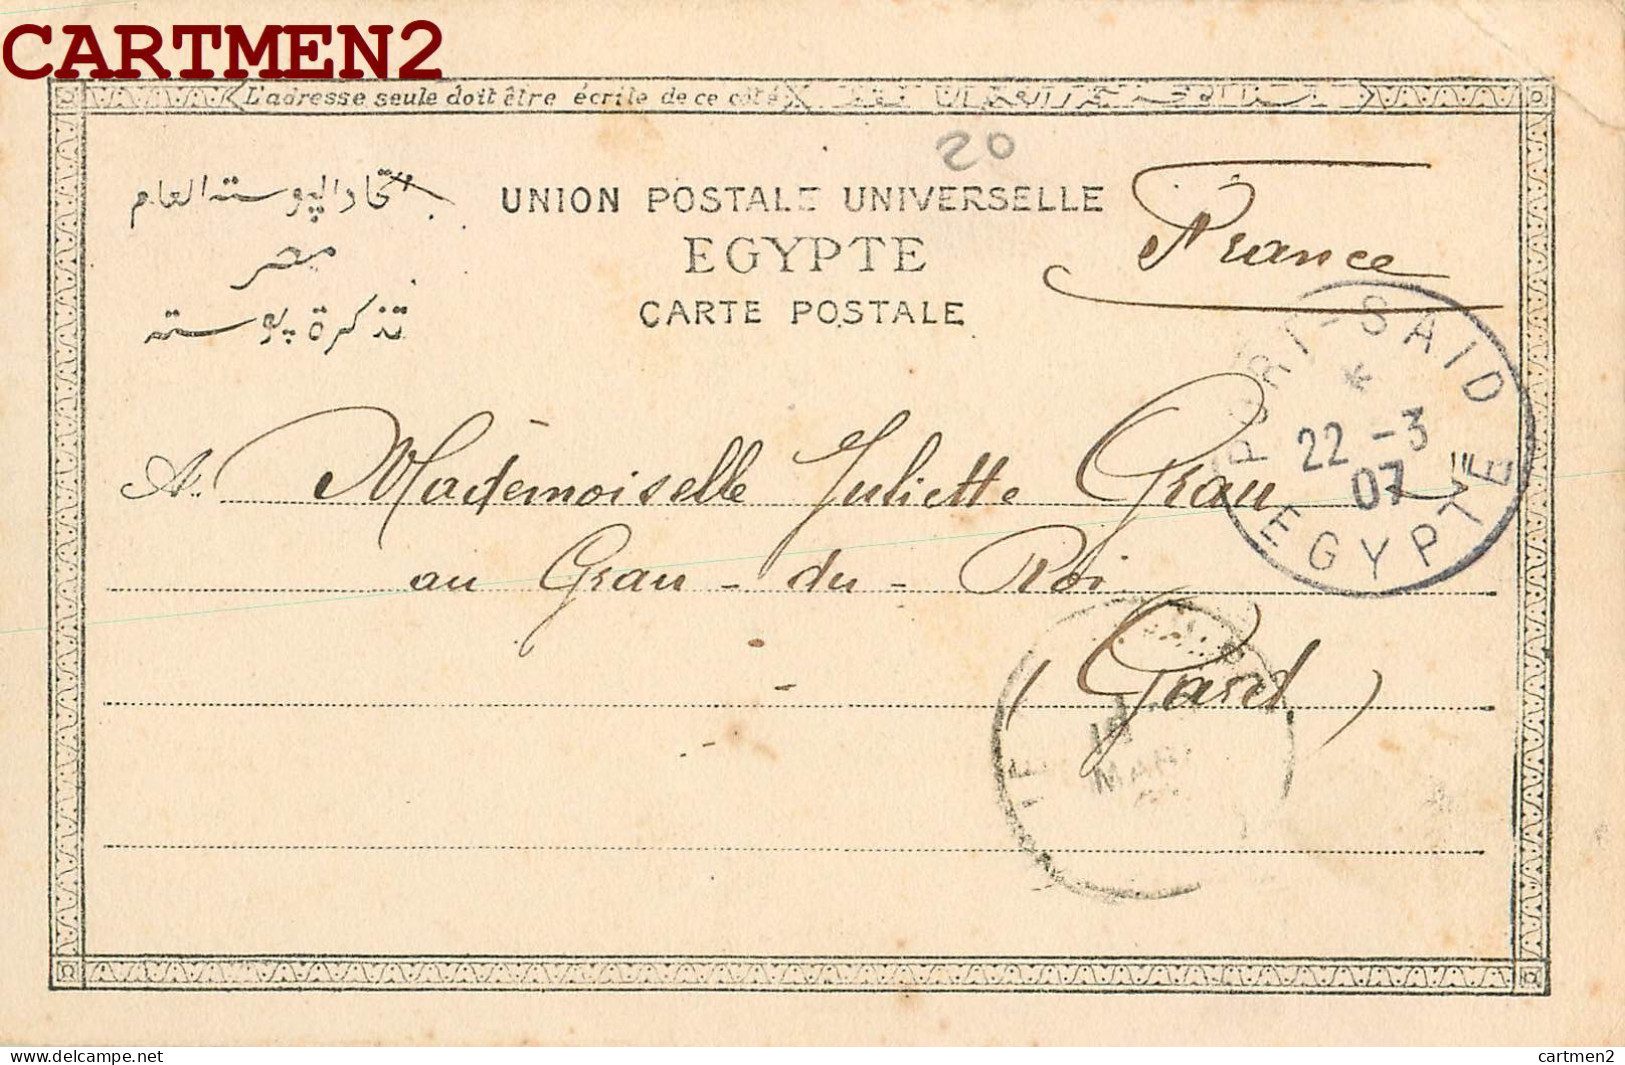 CARTMEN2
L'adresse seule doit être écrite de ce côté
20
اتحاد البوسته العام
مصر
تذكرة بوسته
UNION POSTALE UNIVERSELLE
EGYPTE
CARTE POSTALE
France
PORT-SAID
22 -3
07
EGYPTE
A. Mademoiselle Juliette Grau
au Grau-du-Roi
(Gard)
MAR
delcampe.net
cartmen2